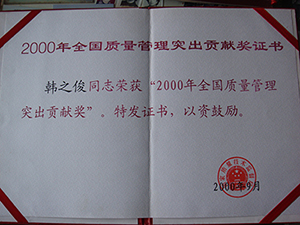 2000年全国质量管理突出贡献奖证书
韩之俊同志荣获“2000年全国质量管理
突出贡献奖”。特发证书，以资鼓励。
2000年9月